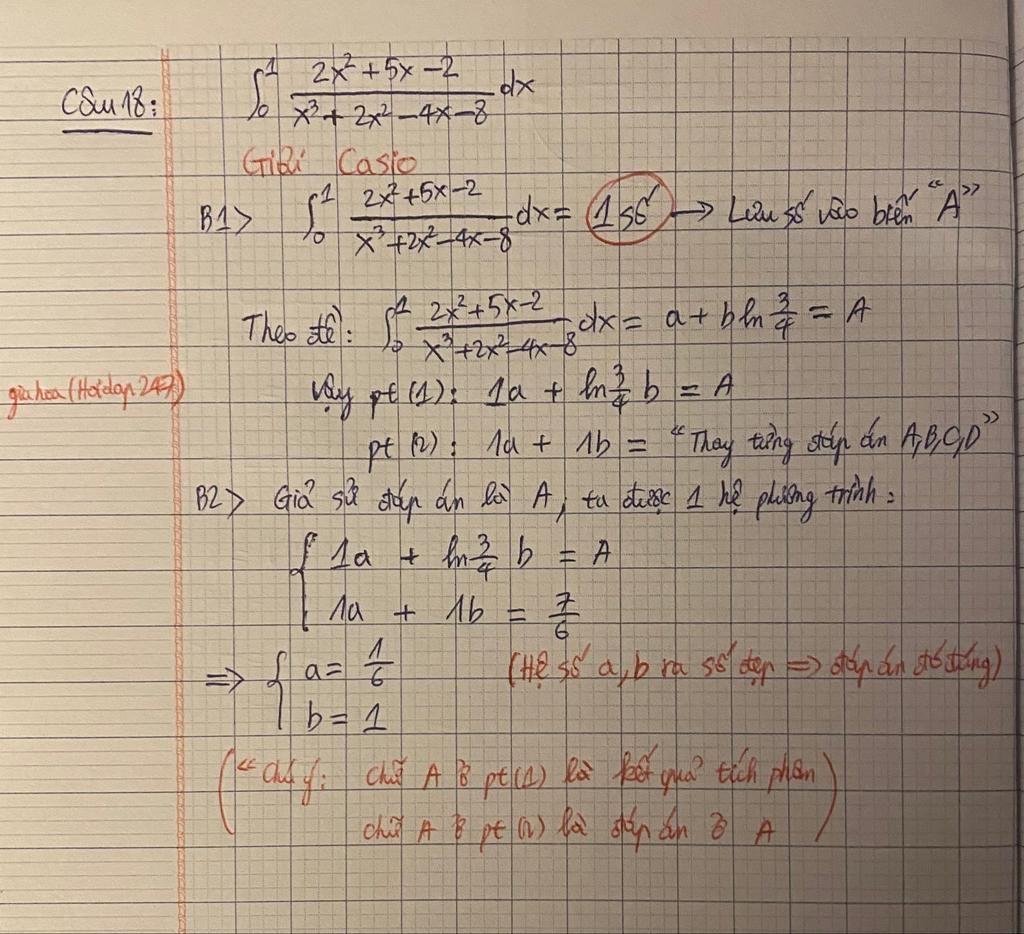 Câu 18: ∫₀¹ (2x² + 5x - 2)/(x³ + 2x² - 4x - 8) dx
Giải Casio
B1> ∫₀¹ (2x² + 5x - 2)/(x³ + 2x² - 4x - 8) dx = 1 số → Lưu số vào biến "A"
Theo đề: ∫₀¹ (2x² + 5x - 2)/(x³ + 2x² - 4x - 8) dx = a + b ln 3/4 = A
giahoa (Hoidap 247)
Vậy pt (1): 1a + ln 3/4 b = A
pt (2): 1a + 1b = "Thay từng đáp án A,B,C,D"
B2> Giả sử đáp án là A, ta được 1 hệ phương trình:
{ 1a + ln 3/4 b = A
1a + 1b = 7/6
=> { a = 1/6 (Hệ số a, b ra số đẹp => đáp án đó đúng)
b = 1
("Chú ý: chữ A ở pt (1) là kết quả tích phân
chữ A ở pt (2) là đáp án ở A)